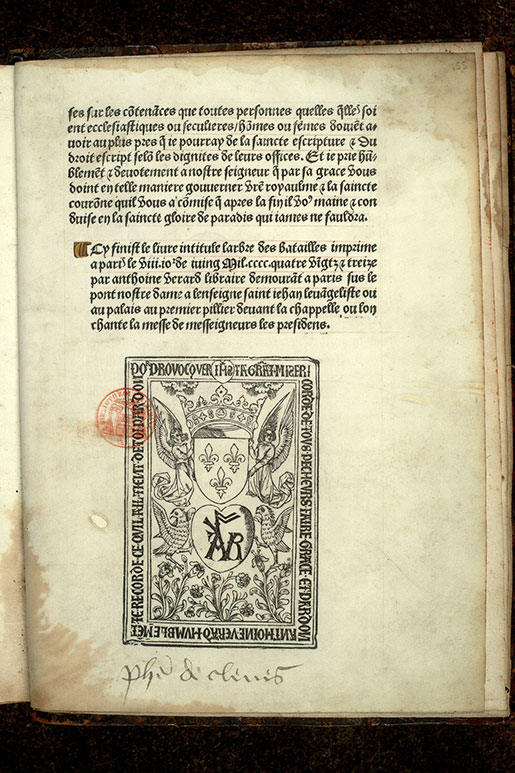 155
ses sur les cõtenãces que toutes personnes quelles q̃lles soi
ent ecclesiastiques ou seculieres/hõmes ou fẽmes doiuẽt a-
uoir au plus pres q̃ ie pourray de la saincte escripture ⁊ Du
droit escript selõ les dignites de leurs offices. Et ie prie hũ-
blemẽt ⁊ deuotement a nostre seigneur q̃ par sa grace vous
doint en telle maniere gouuerner vr̃e royaulme ⁊ la saincte
courõne quil vous a cõmise q̃ apres la fin il voꝰ maine ⁊ con
duise en la saincte gloire de paradis qui iames ne fauldra.
Cy finist le liure intitule larbre des batailles imprime
a paris le viii.ioꝛ de iuing Mil.cccc.quatre vĩgtz ⁊ treize
par anthoine verard libraire demourãt a paris sus le
pont nostre dame a lenseigne saint iehan leuãgeliste ou
au palais au premier pillier deuant la chappelle ou lon
chante la messe de messeigneurs les presidens.
MISERI
CORDE DE TOVS PECHEVRS FAIRE GRACE ET PARDON
ANTHOINE VERAD HVMBLEMẼT
TE RECORDE CE QVIL A IL TIENT DE TOI PAR DON
AVR
phẽ de cleues